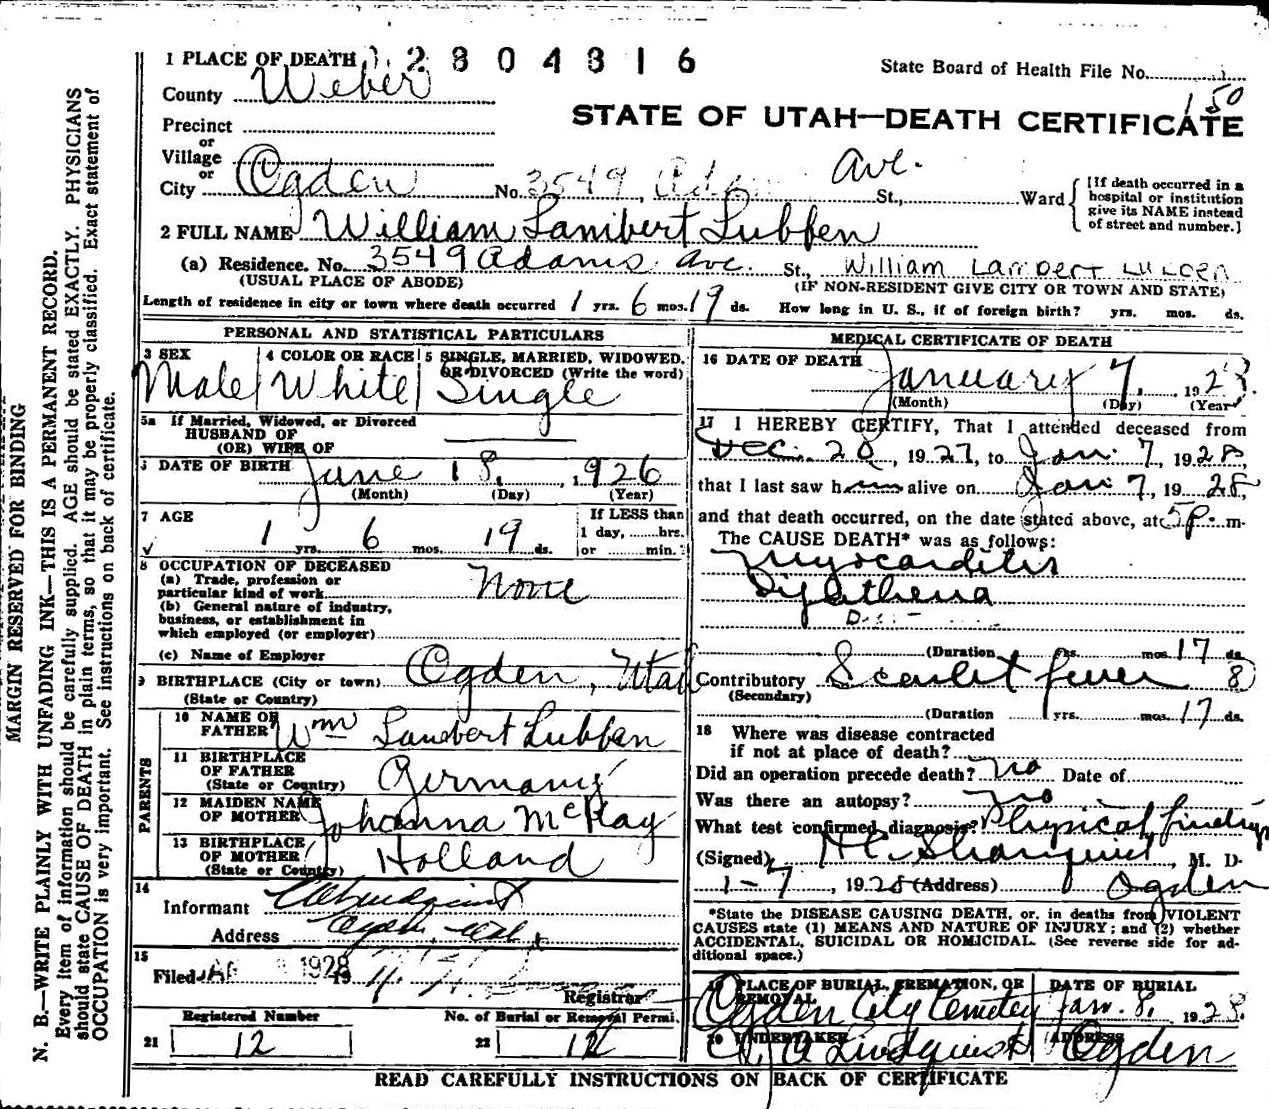 1 PLACE OF DEATH 2 8 0 4 3 1 6
State Board of Health File No.
County Weber
150
STATE OF UTAH—DEATH CERTIFICATE
Precinct
or
Village
or
City Ogden No. 3549 Adams Ave. St., Ward
[If death occurred in a hospital or institution give its NAME instead of street and number.]
2 FULL NAME William Lambert Lubben
(a) Residence. No. 3549 Adams Ave. St., William Lambert Lubben
(USUAL PLACE OF ABODE) (IF NON-RESIDENT GIVE CITY OR TOWN AND STATE)
Length of residence in city or town where death occurred 1 yrs. 6 mos. 19 ds. How long in U. S., if of foreign birth? yrs. mos. ds.
PERSONAL AND STATISTICAL PARTICULARS
3 SEX 4 COLOR OR RACE 5 SINGLE, MARRIED, WIDOWED, OR DIVORCED (Write the word)
Male White Single
5a If Married, Widowed, or Divorced
HUSBAND OF
(OR) WIFE OF
6 DATE OF BIRTH June 18, 1926
(Month) (Day) (Year)
7 AGE
If LESS than
1 day, hrs.
1 yrs. 6 mos. 19 ds. or min.
8 OCCUPATION OF DECEASED
(a) Trade, profession or
particular kind of work None
(b) General nature of industry,
business, or establishment in
which employed (or employer)
(c) Name of Employer
9 BIRTHPLACE (City or town) Ogden, Utah
(State or Country)
PARENTS
10 NAME OF
FATHER Wm Lambert Lubben
11 BIRTHPLACE
OF FATHER
(State or Country) Germany
12 MAIDEN NAME
OF MOTHER Johanna McKay
13 BIRTHPLACE
OF MOTHER
(State or Country) Holland
14
Informant
Address Ogden, Utah
15
Filed 1928
Registrar
Registered Number No. of Burial or Removal Permi.
21 12 22 12
MEDICAL CERTIFICATE OF DEATH
16 DATE OF DEATH
January 7, 1928
(Month) (Day) (Year
17 I HEREBY CERTIFY, That I attended deceased from
Dec. 20, 1927, to Jan. 7, 1928,
that I last saw him alive on Jan 7, 1928,
and that death occurred, on the date stated above, at 5 p. m.
The CAUSE DEATH* was as follows:
Myocarditis
Diphtheria
(Duration yrs. mos. 17 ds.
Contributory Scarlet fever 8
(Secondary)
(Duration yrs. mos. 17 ds.
18 Where was disease contracted
if not at place of death?
Did an operation precede death? no Date of
Was there an autopsy? no
What test confirmed diagnosis? Physical findings
(Signed) M. D.
1-7, 1928 (Address) Ogden
*State the DISEASE CAUSING DEATH, or, in deaths from VIOLENT
CAUSES state (1) MEANS AND NATURE OF INJURY; and (2) whether
ACCIDENTAL, SUICIDAL OR HOMICIDAL. (See reverse side for ad-
ditional space.)
19 PLACE OF BURIAL, CREMATION, OR REMOVAL DATE OF BURIAL
Ogden City Cemetery Jan. 8, 1928.
20 UNDERTAKER ADDRESS
Lindquist Ogden
READ CAREFULLY INSTRUCTIONS ON BACK OF CERTIFICATE
MARGIN RESERVED FOR BINDING
N. B.—WRITE PLAINLY WITH UNFADING INK—THIS IS A PERMANENT RECORD.
Every item of information should be carefully supplied. AGE should be stated EXACTLY. PHYSICIANS
should state CAUSE OF DEATH in plain terms, so that it may be properly classified. Exact statement of
OCCUPATION is very important. See instructions on back of certificate.